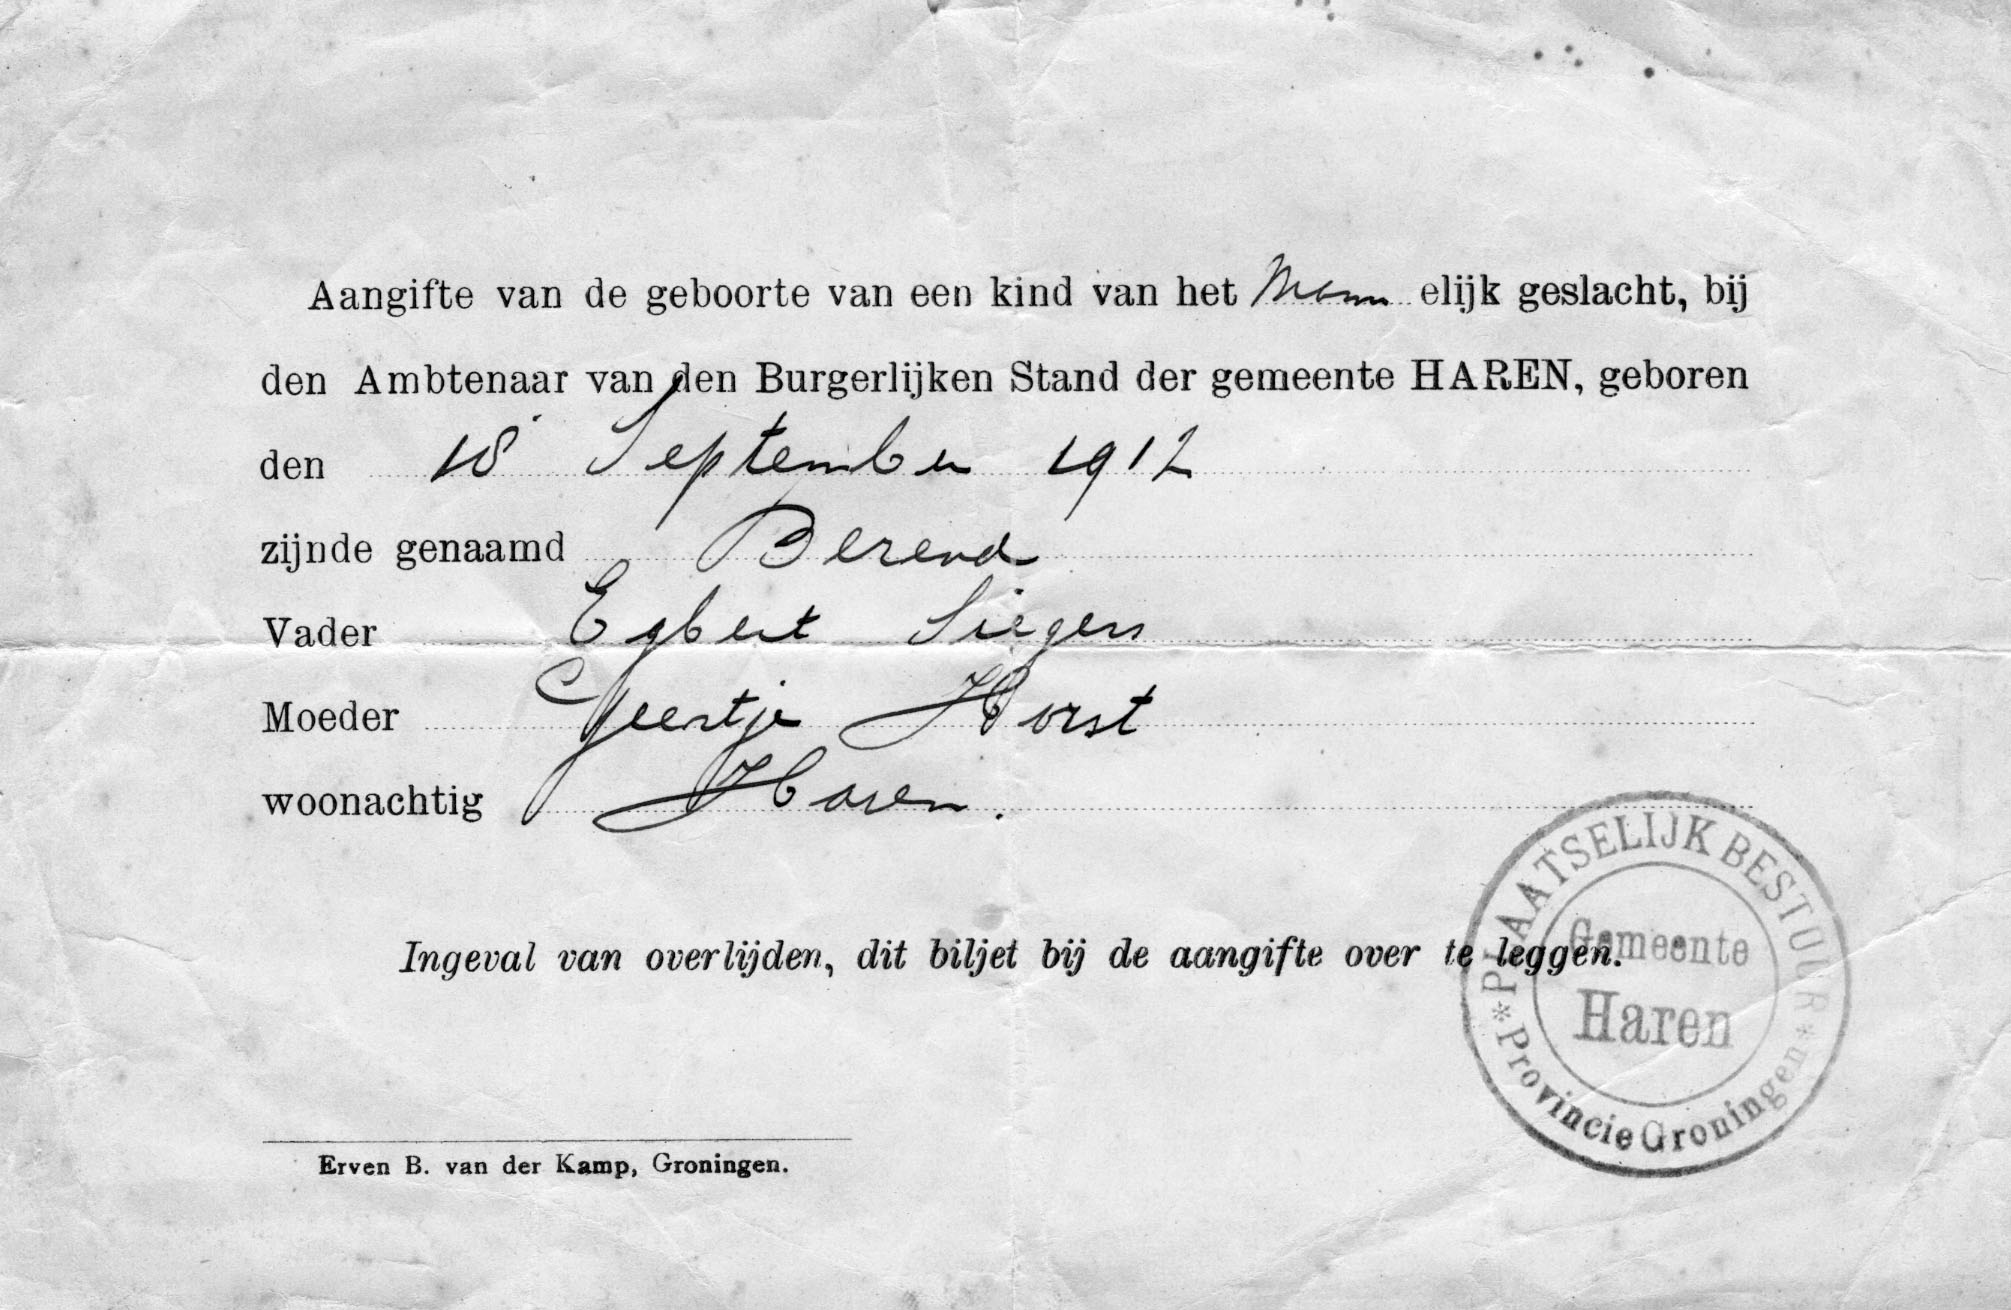 Aangifte van de geboorte van een kind van het Mann elijk geslacht, bij
den Ambtenaar van den Burgerlijken Stand der gemeente HAREN, geboren
den 18 September 1912
zijnde genaamd Berend
Vader Egbert Siegers
Moeder Geertje Horst
woonachtig Haren.
Ingeval van overlijden, dit biljet bij de aangifte over te leggen.
* PLAATSELIJK BESTUUR *
Gemeente
Haren
Provincie Groningen
Erven B. van der Kamp, Groningen.